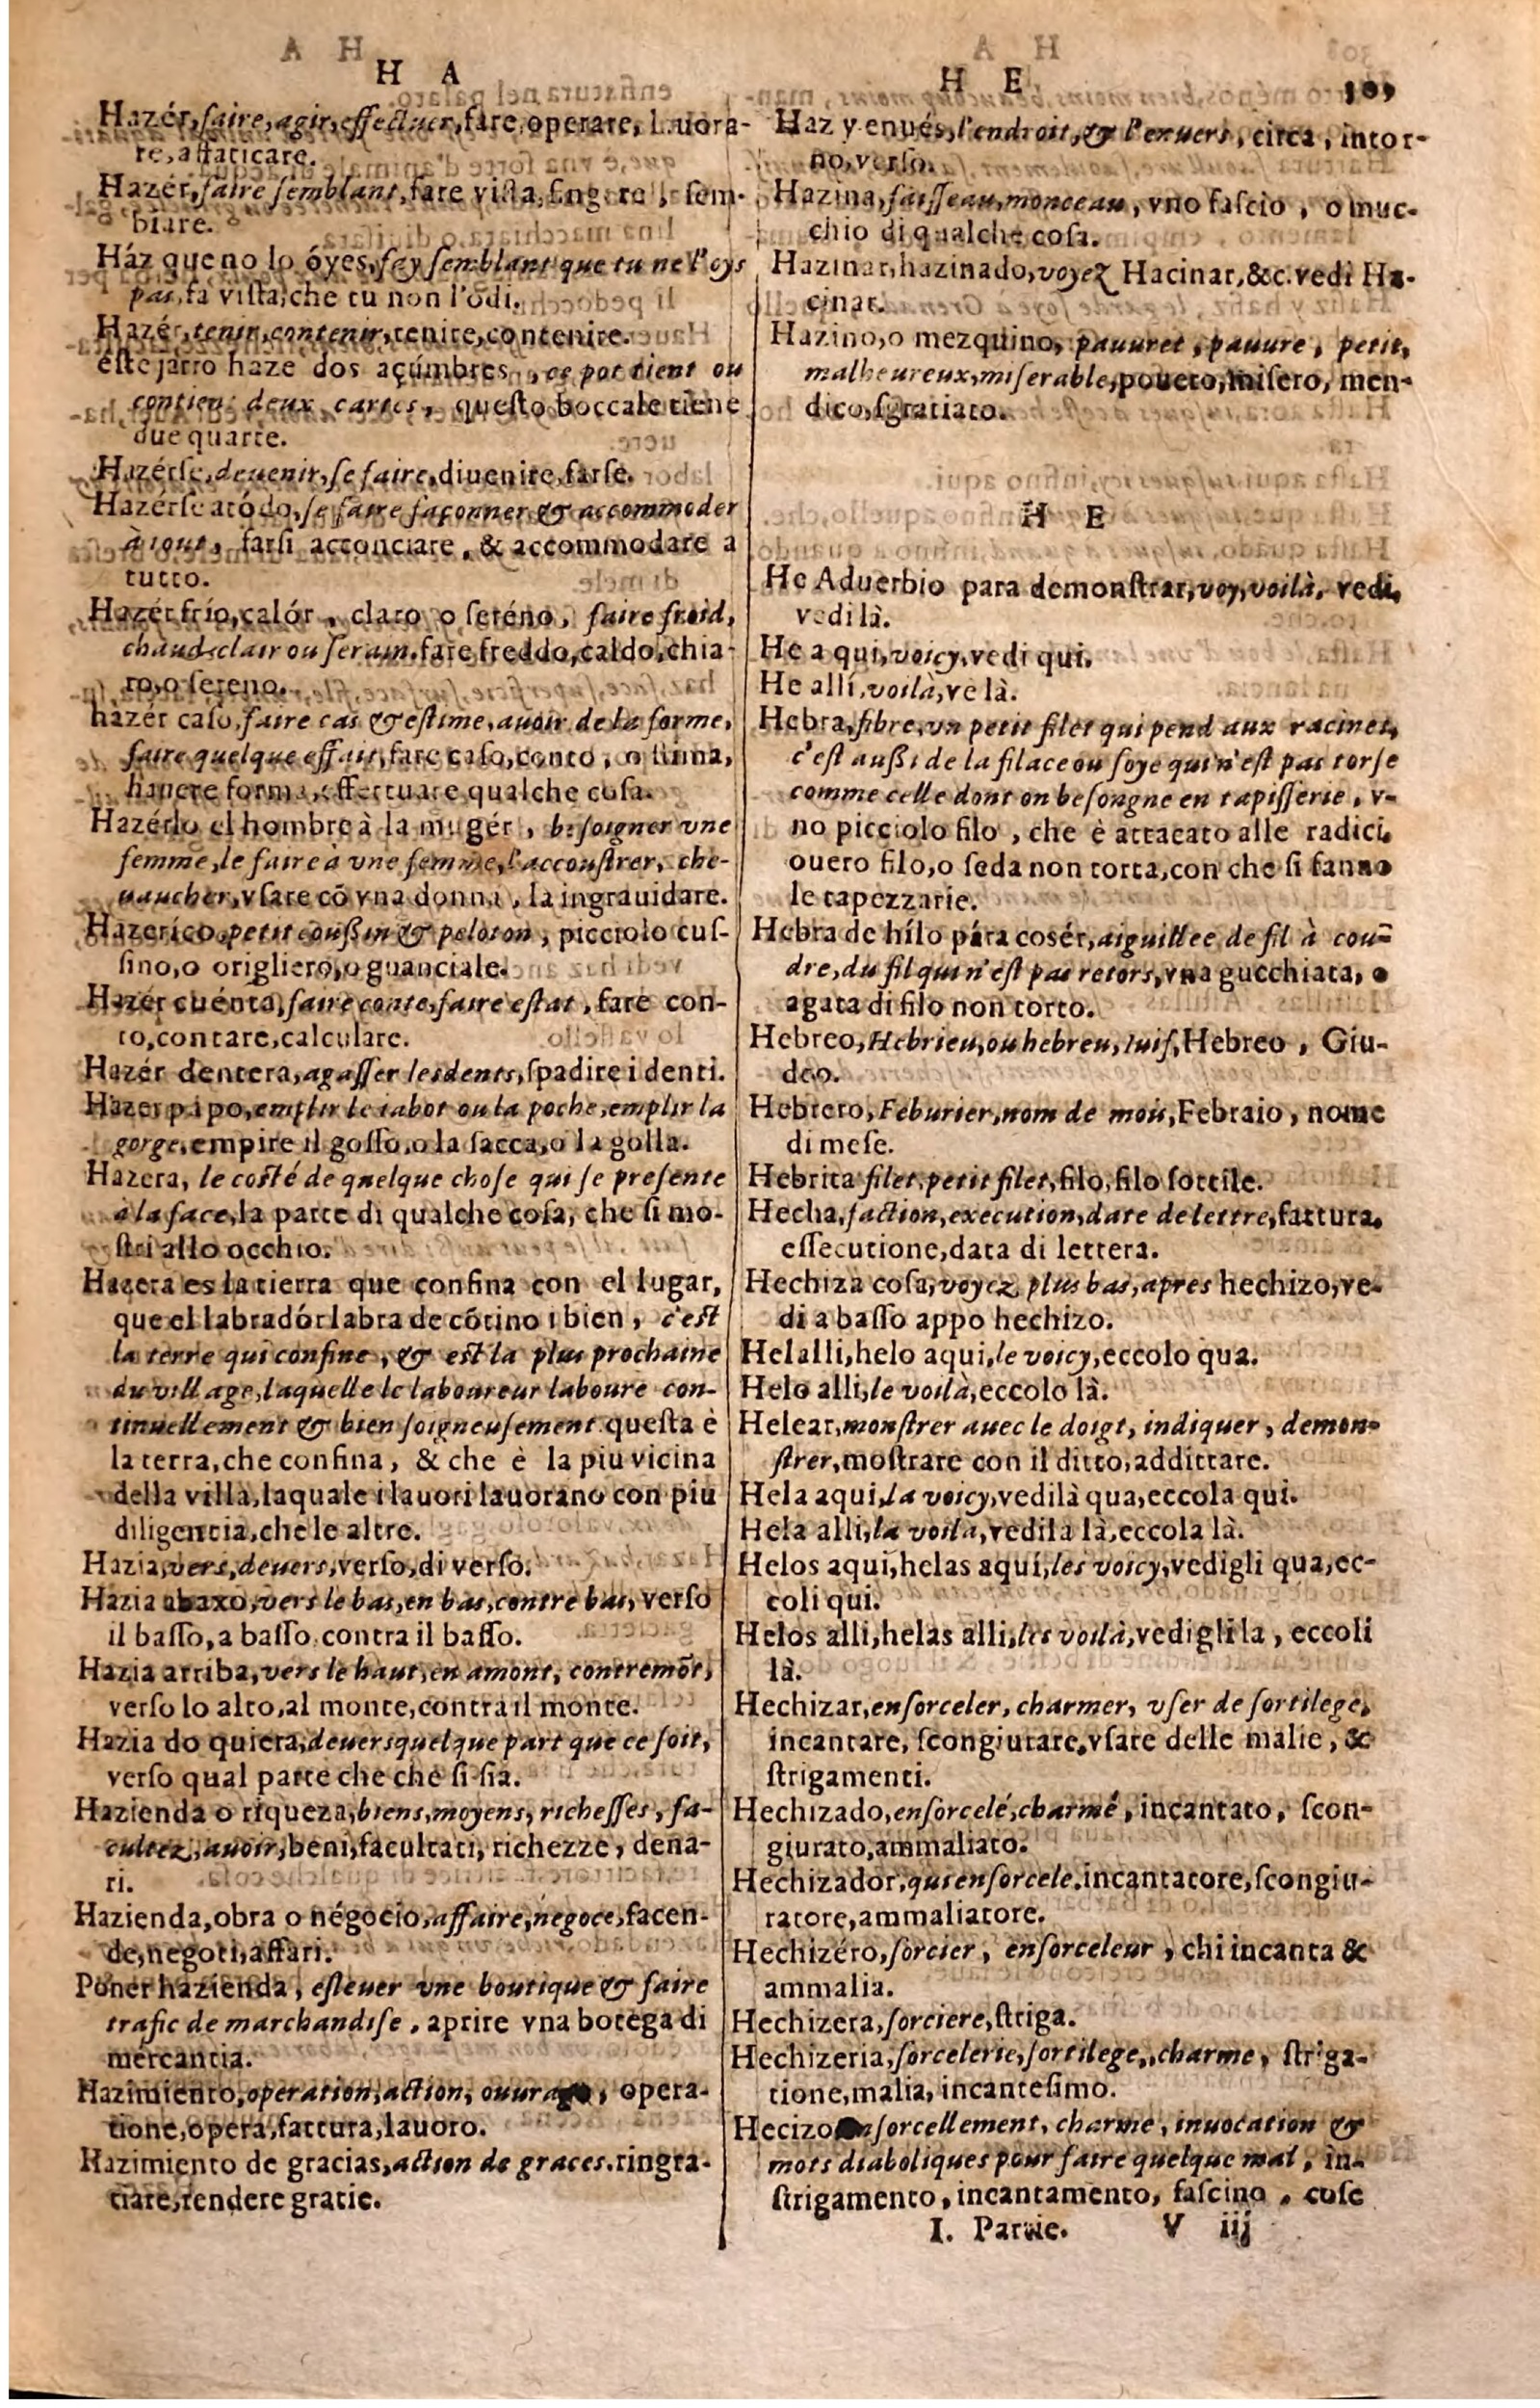 H A
Hazér, faire, agir, effectuer, fare, operare, lauora-
re, affaticare.
Hazér, faire ſemblant, fare viſta, fingere, ſem-
biare.
Ház que no lo óyes, fay ſemblant que tu ne l'oys
pas, fa viſta, che tu non l'odi.
Hazér, tenir, contenir, tenire, contenire.
eſte jarro haze dos açúmbres, ce pot tient ou
contient deux cartes, queſto boccale tiene
due quarte.
Hazérſe, deuenir, ſe faire, diuenire, farſe.
Hazérſe a tódo, ſe faire façonner & accommoder
à tout, farſi acconciare, & accommodare a
tutto.
Hazér frío, calór, claro o ſeréno, faire froid,
chaud, clair ou ſerain, fare freddo, caldo, chia-
ro, o ſereno.
hazér caſo, faire cas & eſtime, auoir de la forme,
faire quelque effait, fare caſo, conto, o ſtima,
hauere forma, effettuare qualche coſa.
Hazérlo el hombre à la mugér, beſoigner vne
femme, le faire à vne femme, l'accouſtrer, che-
uaucher, vſare cō vna donna, la ingrauidare.
Hazeríco, petit couſsin & peloton, picciolo cuſ-
ſino, o origliero, o guanciale.
Hazér cuénta, faire conte, faire eſtat, fare con-
to, contare, calculare.
Hazér dentera, agaſſer les dents, ſpadire i denti.
Hazer papo, emplir le iabot ou la poche, emplir la
gorge, empire il goſſo, o la ſacca, o la golla.
Hazera, le coſté de quelque choſe qui ſe preſente
à la face, la parte di qualche coſa, che ſi mo-
ſtri allo occhio.
Hazera es la tierra que confina con el lugar,
que el labradór labra de cōtino i bien, c'eſt
la terre qui confine, & eſt la plus prochaine
du village, laquelle le laboureur laboure con-
tinuellement & bien ſoigneuſement queſta è
la terra, che confina, & che è la piu vicina
della villa, laquale i lauori lauorano con piu
diligentia, che le altre.
Hazia, vers, deuers, verſo, di verſo.
Hazia abaxo, vers le bas, en bas, contre bas, verſo
il baſſo, a baſſo, contra il baſſo.
Hazia arriba, vers le haut, en amont, contremōt,
verſo lo alto, al monte, contra il monte.
Hazia do quiera, deuers quelque part que ce ſoit,
verſo qual parte che che ſi ſia.
Hazienda o riqueza, biens, moyens, richeſſes, fa-
cultez, auoir, beni, facultati, richezze, dena-
ri.
Hazienda, obra o négocio, affaire, negoce, facen-
de, negoti, affari.
Poner hazienda, eſleuer vne boutique & faire
trafic de marchandiſe, aprire vna botega di
mercantia.
Hazimiento, operation, action, ouurage, opera-
tione, opera, fattura, lauoro.
Hazimiento de gracias, action de graces. ringra-
tiare, rendere gratie.
H E
309
Haz y enués, l'endroit, & l'enuers, circa, intor-
no, verſo.
Hazina, faiſſeau, monceau, vno faſcio, o muc-
chio di qualche coſa.
Hazinar, hazinado, voyez Hacinar, &c. vedi Ha-
cinar.
Hazino, o mezquino, pauuret, pauure, petit,
malheureux, miſerable, pouero, miſero, men-
dico, ſgratiato.
H E
He Aduerbio para demonſtrar, voy, voilà, vedi,
vedi là.
He a qui, voicy, vedi qui.
He allí, voilà, ve là.
Hebra, fibre, vn petit filet qui pend aux racines,
c'eſt auſsi de la filace ou ſoye qui n'eſt pas torſe
comme celle dont on beſongne en tapiſſerie, v-
no picciolo filo, che è attacato alle radici,
ouero filo, o ſeda non torta, con che ſi fanno
le tapezzarie.
Hebra de hílo pára cosér, aiguillee de fil à cou-
dre, du fil qui n'eſt pas retors, vna gucchiata, o
agata di filo non torto.
Hebreo, Hebrieu, ou hebreu, Iuif, Hebreo, Giu-
deo.
Hebrero, Feburier, nom de mois, Febraio, nome
di meſe.
Hebrita filet, petit filet, filo, filo ſottile.
Hecha, faction, execution, date de lettre, fattura,
eſſecutione, data di lettera.
Hechiza coſa, voyez plus bas, apres hechizo, ve-
di a baſſo appo hechizo.
Helalli, helo aqui, le voicy, eccolo qua.
Helo alli, le voilà, eccolo là.
Helear, monſtrer auec le doigt, indiquer, demon-
ſtrer, moſtrare con il ditto, addittare.
Hela aqui, la voicy, vedilà qua, eccola qui.
Hela alli, la voila, vedila là, eccola là.
Helos aqui, helas aquí, les voicy, vedigli qua, ec-
coli qui.
Helos alli, helas alli, les voilà, vedigli la, eccoli
là.
Hechizar, enſorceler, charmer, vſer de ſortilege,
incantare, ſcongiurare, vſare delle malie, &
ſtrigamenti.
Hechizado, enſorcelé, charmé, incantato, ſcon-
giurato, ammaliato.
Hechizador, qui enſorcele, incantatore, ſcongiu-
ratore, ammaliatore.
Hechizéro, ſorcier, enſorceleur, chi incanta &
ammalia.
Hechizera, ſorciere, ſtriga.
Hechizeria, ſorcelerie, ſortilege, charme, ſtriga-
tione, malia, incanteſimo.
Hecizo enſorcellement, charme, inuocation &
mots diaboliques pour faire quelque mal, in-
ſtrigamento, incantamento, faſcino, coſe
I. Partie. V iij